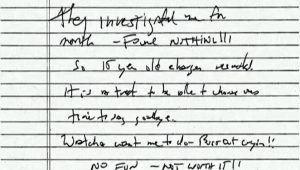 they investigated me for
month – Found NOTHING!!!
So 15 year old charges resulted.
It is a treat to be able to choose
time to say goodbye.
Watcha want me to do – Burrat cryin!!
NO FUN – NOT WORTH IT!!